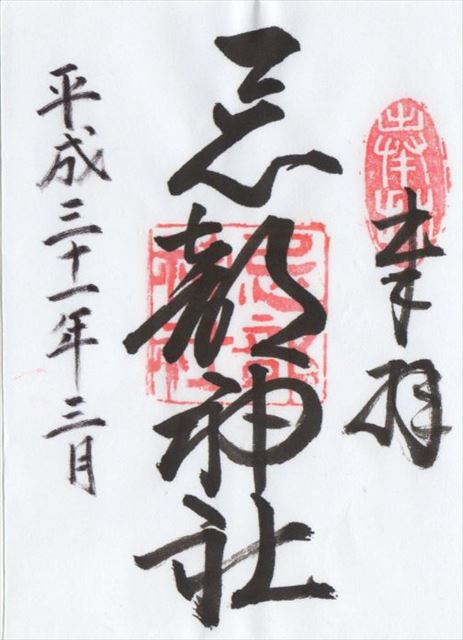 奉拝
忌部神社
忌部神社
平成三十一年三月